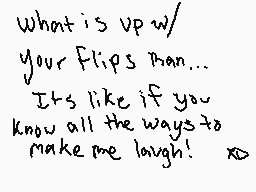 what is up w/
your flips man...
Its like if you
know all the ways to
make me laugh! XD